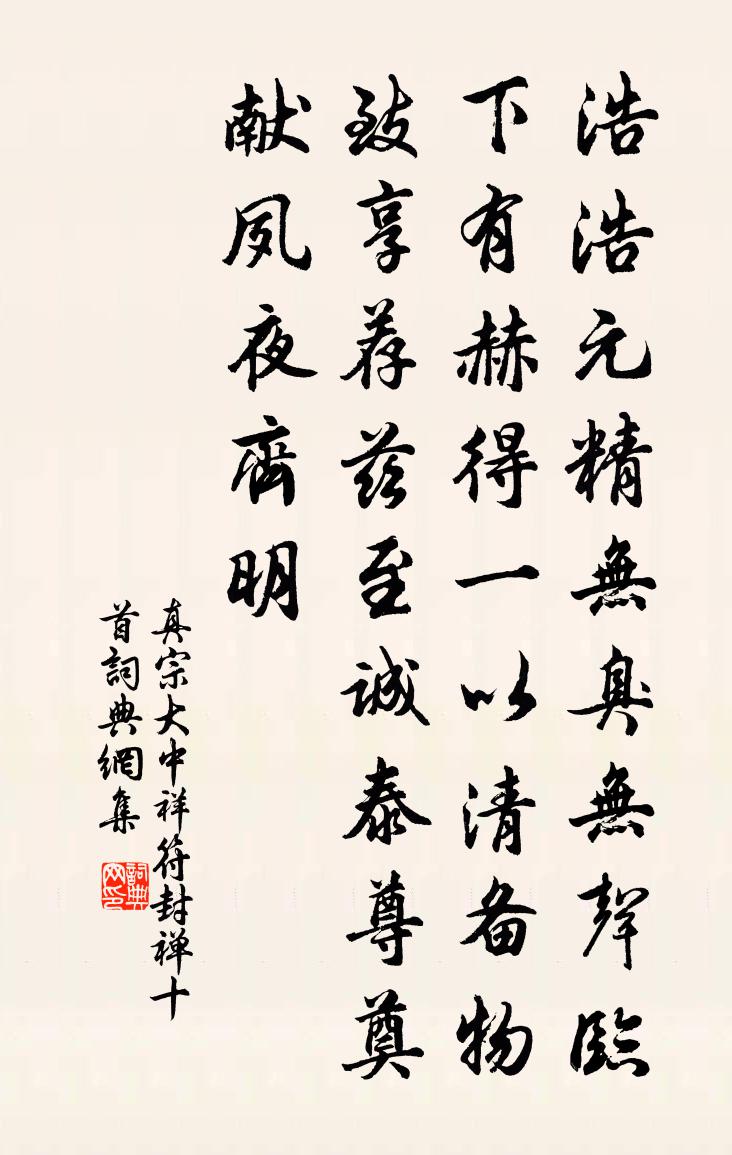 浩浩元精無臭無聲臨
下有赫得一以清备物
致享荐兹至诚泰尊奠
献夙夜齊明
真宗大中祥符封禅十
首詞典網集
詞典
网印